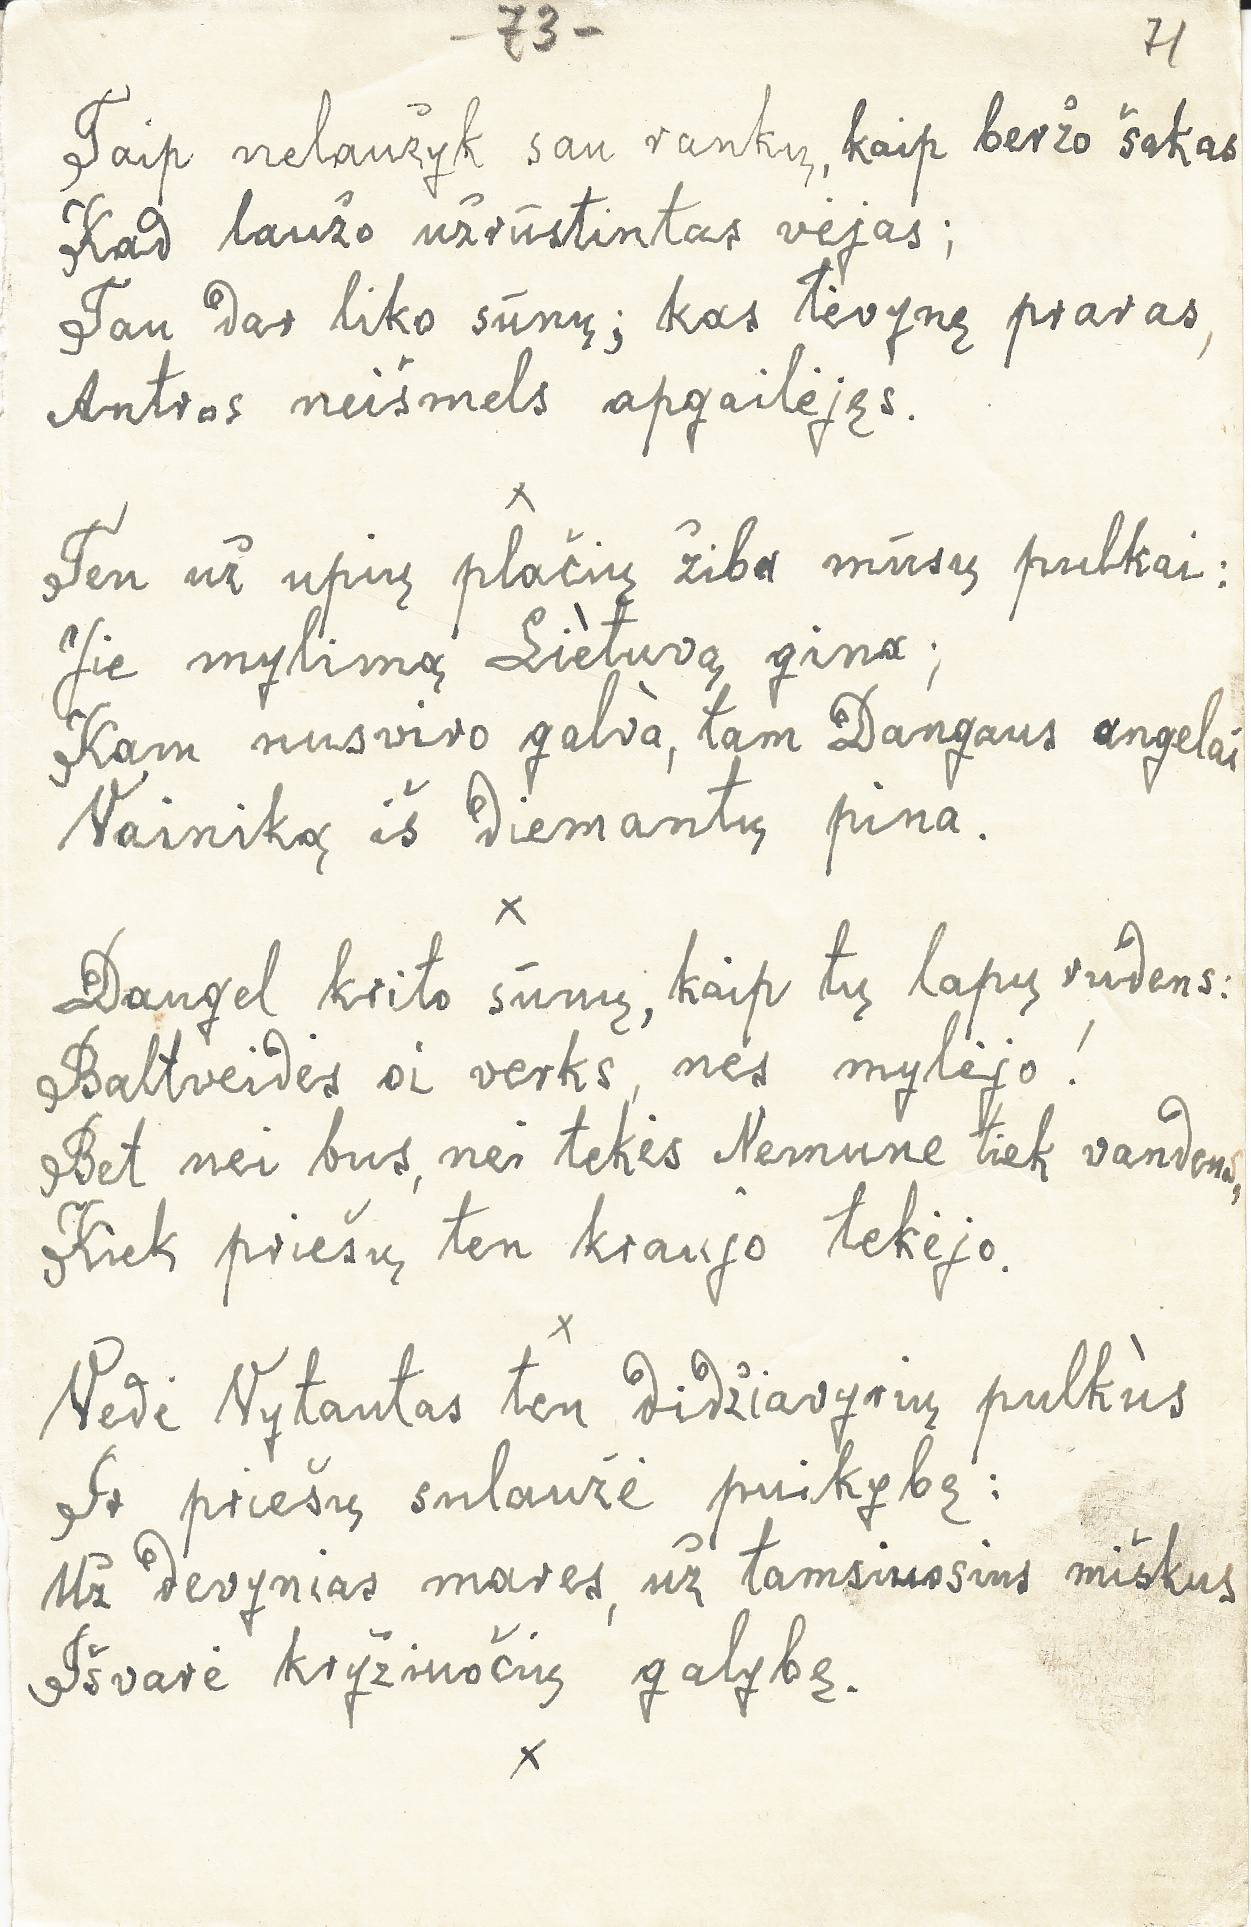 - 73 -
71
Taip nelaužyk sau rankų, kaip beržo šakas
Kad laužo užrūstintas vėjas;
Tau dar liko sūnų; kas tėvynę praras,
Antros neišmels apgailėjęs.
x
Ten už upių plačių žiba mūsų pulkai:
Jie mylimą Lìetuvą gina;
Kam nusviro galvà, tam Dangaus angelai
Vainiką iš diemantų pina.
x
Daugel krito sūnų, kaip tų lapų rudens:
Baltveidės oi verks, nes mylėjo!
Bet nei bus, nei tekės Nemune tiek vandens,
Kiek priešų ten kraujo tekėjo.
x
Vedė Vytautas ten didžiavyrių pulkùs
Ir priešų sulaužė puikybę:
Už devynias mares, už tamsiuosius miškus
Išvarė kryžiuočių galybę.
x